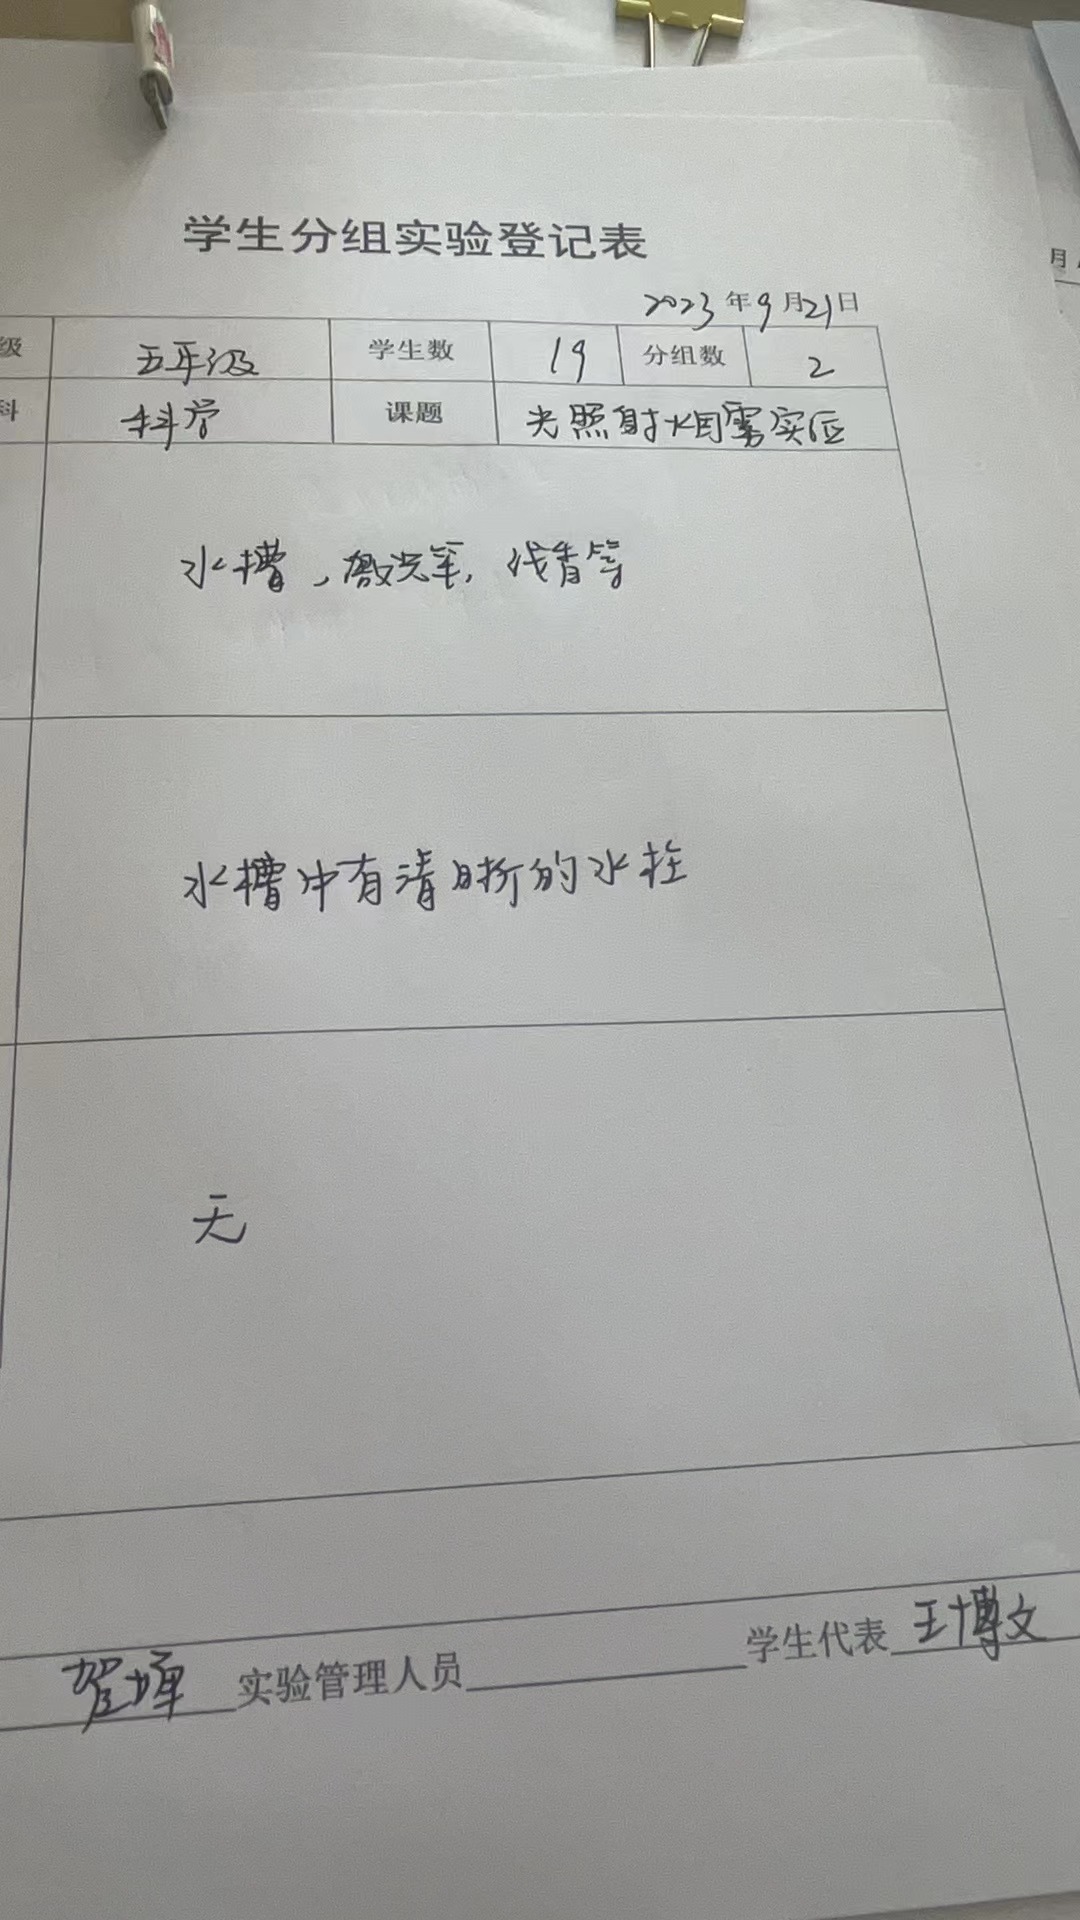 学生分组实验登记表
2023年9月21日
级 五年级 学生数 19 分组数 2
科 科学 课题 光照射烟雾实
水槽，激光笔，线香等
水槽中有清晰的水柱
无
贺 实验管理人员 学生代表 王博文
月